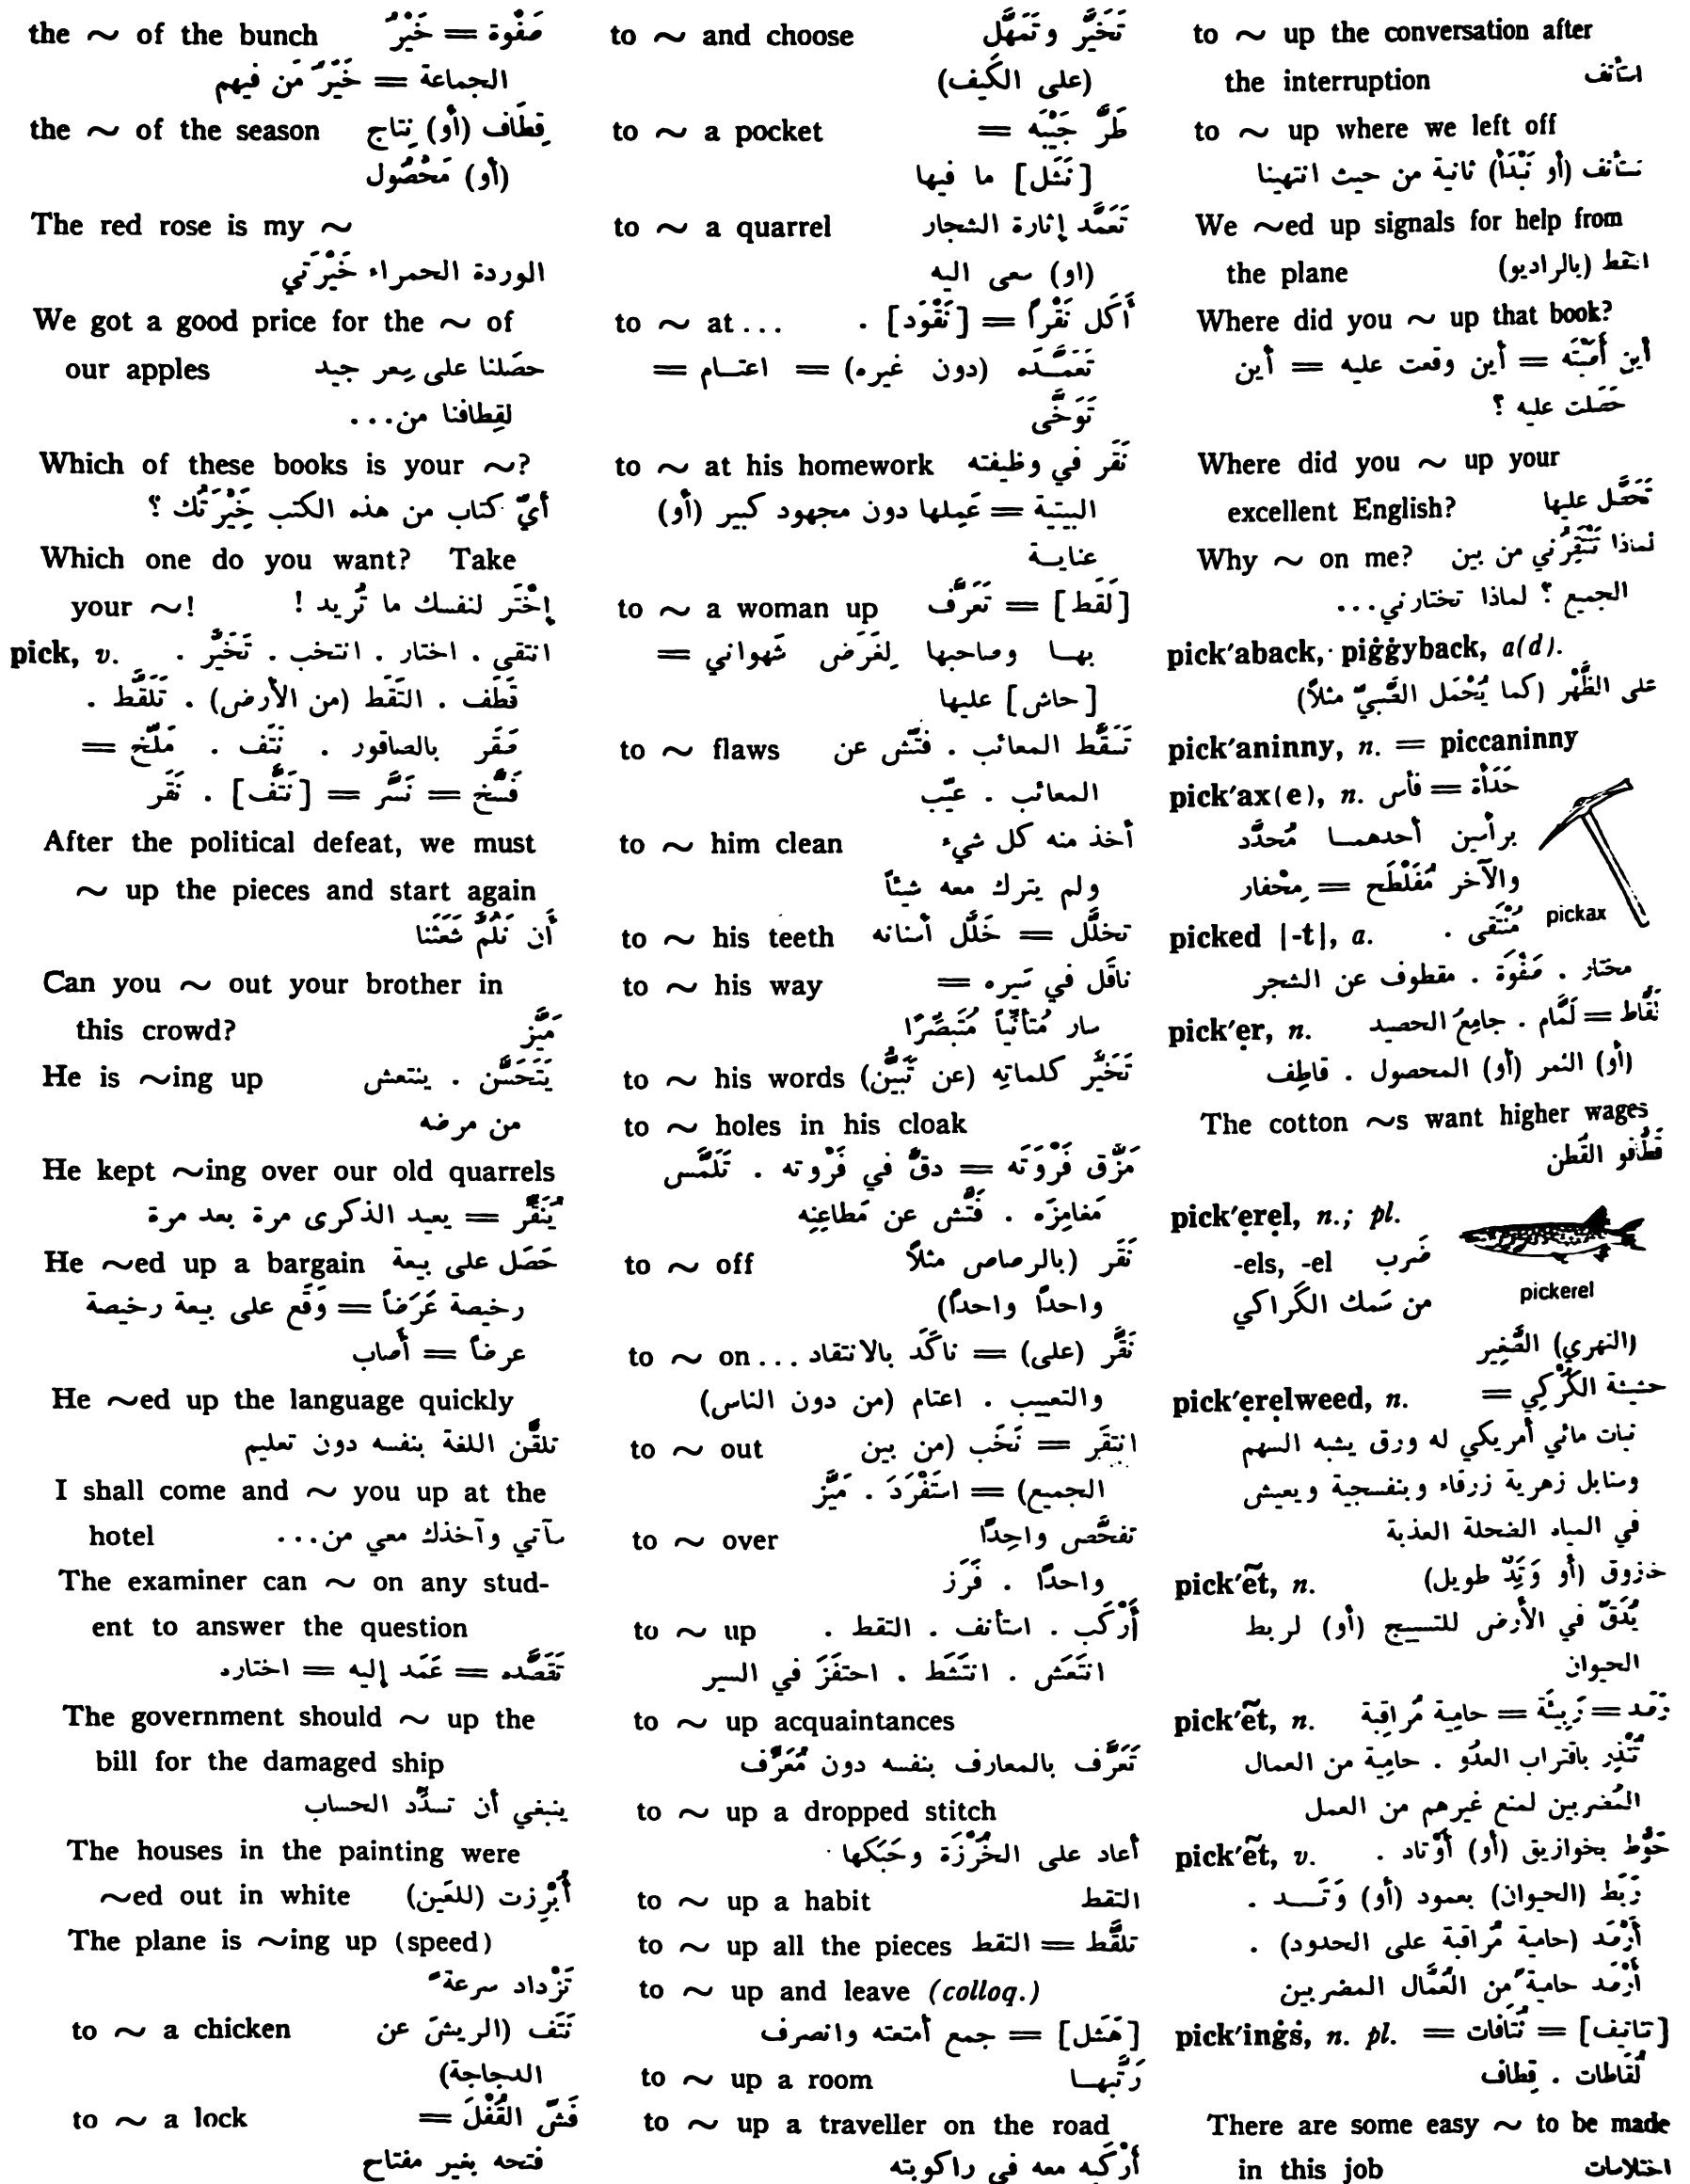 the ~ of the bunch صَفْوة = خَيْرُ
الجماعة = خَيْرُ مَن فيهم
the ~ of the season قِطَاف (أو) نِتاج
(أو) مَحْصُول
The red rose is my ~
الوردة الحمراء خَيْرَتي
We got a good price for the ~ of
our apples حصَلنا على سِعر جيد
لقِطافنا من...
Which of these books is your ~?
أيّ كتاب من هذه الكتب خِيْرَتُك ؟
Which one do you want? Take
your ~! إِخْتَر لنفسك ما تُريد !
pick, v. انتقى . اختار . انتخب . تَخَيَّر .
قَطَف . التَقَط (من الأرض) . تَلَقَّط .
صَقَر بالصاقور . نَتَف . مَلَّخ =
فَسَّخ = نَسَّر = [نَتَّف] . نَقَر
After the political defeat, we must
~ up the pieces and start again
أن نَلُمَّ شَعَثَنا
Can you ~ out your brother in
this crowd? مَيَّز
He is ~ing up يَتَحَسَّن . ينتعش
من مرضه
He kept ~ing over our old quarrels
يُنَقِّر = يعيد الذكرى مرة بعد مرة
He ~ed up a bargain حَصَل على بيعة
رخيصة عَرَضاً = وَقَع على بيعة رخيصة
عرضاً = أَصاب
He ~ed up the language quickly
تلقَّن اللغة بنفسه دون تعليم
I shall come and ~ you up at the
hotel سآتي وآخذك معي من...
The examiner can ~ on any stud-
ent to answer the question
تَقَصَّده = عَمَد إليه = اختاره
The government should ~ up the
bill for the damaged ship
ينبغي أن تسدِّد الحساب
The houses in the painting were
~ed out in white أُبْرِزت (للعَين)
The plane is ~ing up (speed)
تَزْداد سرعةً
to ~ a chicken نَتَف (الريشَ عن
الدجاجة)
to ~ a lock فَشَّ القُفْلَ =
فتحه بغير مفتاح
to ~ and choose تَخَيَّر وتَمَهَّل
(على الكَيف)
to ~ a pocket طَرَّ جَيْبَه =
[نَشَل] ما فيها
to ~ a quarrel تَعَمَّد إثارة الشجار
(او) سعى اليه
to ~ at... أَكَل نَقْراً = [نَقْوَد] .
تَعَمَّـده (دون غيره) = اعتـام =
تَوَخَّى
to ~ at his homework نَقَر في وظيفته
البيتية = عَمِلها دون مجهود كبير (أو)
عنايـة
to ~ a woman up [لَقَط] = تَعَرَّف
بهـا وصاحبها لِغَرَض شَهواني =
[حاش] عليها
to ~ flaws تَسَقَّط المعائب . فتَّش عن
المعائب . عيَّب
to ~ him clean أخذ منه كل شيء
ولم يترك معه شيئاً
to ~ his teeth تخلَّل = خَلَّل أسنانه
to ~ his way ناقَل في سَيره =
سار مُتأنّياً مُتَبصِّرًا
to ~ his words تَخيَّر كلماتِه (عن تَبَيُّن)
to ~ holes in his cloak
مَزَّق فَرْوَتَه = دقَّ في فَرْوته . تَلَمَّس
مَغامِزَه . فَتَّش عن مَطاعِنِه
to ~ off نَقَر (بالرصاص مثلاً
واحداً واحداً)
to ~ on... نَقَّر (على) = ناكَد بالانتقاد
والتعييب . اعتام (من دون الناس)
to ~ out انتِقَر = نَخَب (من بين
الجميع) = استَفْرَدَ . مَيَّز
to ~ over تفحَّص واحِدًا
واحدًا . فَرَز
to ~ up أَرْكَب . استأنف . التقط .
انتَعَش . انتَشَط . احتفَزَ في السير
to ~ up acquaintances
تَعَرَّف بالمعارف بنفسه دون مُعَرِّف
to ~ up a dropped stitch
أعاد على الخُرْزَة وحَبَكها
to ~ up a habit التقط
to ~ up all the pieces تلقَّط = التقط
to ~ up and leave (colloq.)
[هَشَل] = جمع أمتعته وانصرف
to ~ up a room رَتَّبهـا
to ~ up a traveller on the road
أرْكَبه معه في راكوبته
to ~ up the conversation after
the interruption استأنف
to ~ up where we left off
نستأنف (أو نَبْدَأ) ثانية من حيث انتهينا
We ~ed up signals for help from
the plane التقط (بالراديو)
Where did you ~ up that book?
أين أَصَبْتَه = أين وقعت عليه = أين
حَصَلت عليه ؟
Where did you ~ up your
excellent English? تَحَصَّل عليها
Why ~ on me? لماذا تَنْتَقِرُني من بين
الجميع ؟ لماذا تختارني...
pick′aback, piġġyback, a(d).
على الظَّهْر (كما يُحْمَل الصَّبيّ مثلاً)
pick′aninny, n. = piccaninny
pick′ax(e), n. حَدَأة = فأس
برأسين أحدهمـا مُحدَّد
والآخر مُفَلْطَح = مِحْفار
pickax
picked |-t|, a. مُنْتَقى .
مختار . صَفْوَة . مقطوف عن الشجر
pick′ẹr, n. لَقَّاط = لَمَّام . جامِعُ الحصيد
(أو) الثمر (أو) المحصول . قاطِف
The cotton ~s want higher wages
قَطَّافو القُطن
pick′ẹrẹl, n.; pl.
-els, -el ضَرب
من سَمك الكَراكي
pickerel
(النهري) الصَّغير
pick′ẹrẹlweed, n. حشيشة الكُرْكِي =
نبات مائي أمريكي له ورق يشبه السهم
وسنابل زهرية زرقاء وبنفسجية ويعيش
في المياه الضحلة العذبة
pick′et̃, n. خازوق (أو وَتِدٌ طويل)
يُدَقّ في الأرض للتسييج (أو) لربط
الحيوان
pick′et̃, n. رَصَد = رَبِيئَة = حامية مُراقِبة
تُنْذِر باقتراب العَدُو . حامِية من العمال
المُضربين لمنع غيرهم من العمل
pick′et̃, v. حَوَّط بخوازيق (أو) أَوْتاد .
رَبَط (الحيوان) بعمود (أو) وَتَـــد .
أَرْصَد (حامية مُراقبة على الحدود) .
أَرْصَد حاميةً من العُمَّال المضربين
pick′inġṡ, n. pl. [تناتيف] = نُتَافات =
لُقَاطات . قِطاف
There are some easy ~ to be made
in this job اختلاسات